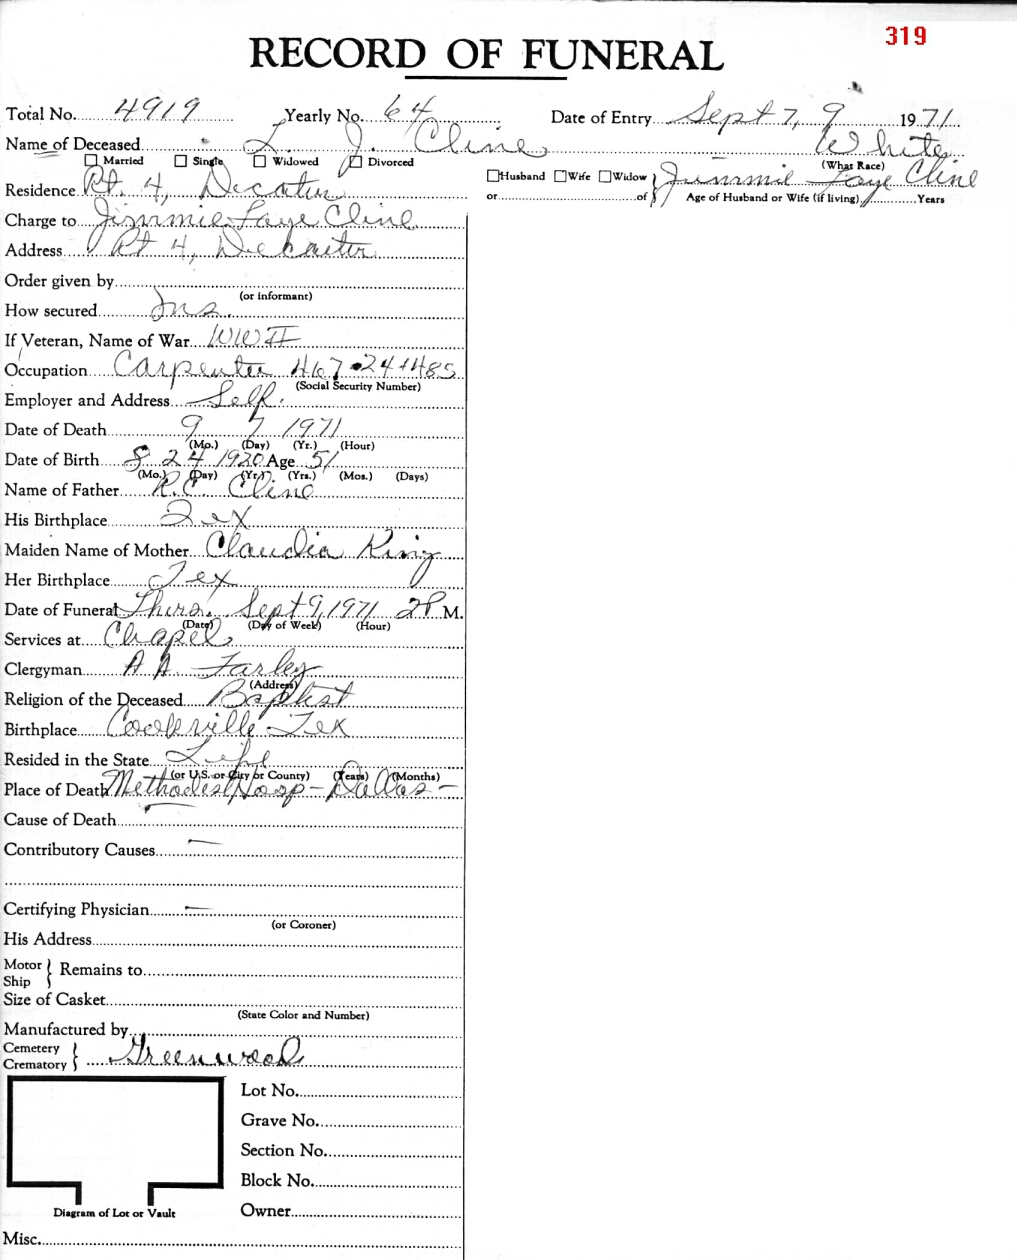 319
RECORD OF FUNERAL
Total No. 4919 Yearly No. 64 Date of Entry Sept 7, 9 1971
Name of Deceased L. J. Cline White
Married Single Widowed Divorced (What Race)
Residence Rt. 4, Decatur Husband Wife Widow Jimmie Faye Cline
or of Age of Husband or Wife (if living) Years
Charge to Jimmie Faye Cline
Address Rt 4, Decatur
Order given by
(or informant)
How secured Ins.
If Veteran, Name of War WW II
Occupation Carpenter 467-24-1485
(Social Security Number)
Employer and Address Self.
Date of Death 9 7 1971
(Mo.) (Day) (Yr.) (Hour)
Date of Birth 8 24 1920 Age 51
(Mo.) (Day) (Yr.) (Yrs.) (Mos.) (Days)
Name of Father R.C. Cline
His Birthplace Tex
Maiden Name of Mother Claudia King
Her Birthplace Tex
Date of Funeral Thurs. Sept 9, 1971 2 P M.
(Date) (Day of Week) (Hour)
Services at Chapel
Clergyman A A. Farley
(Address)
Religion of the Deceased Baptist
Birthplace Cookville Tex
Resided in the State Life
(or U.S. or City or County) (Years) (Months)
Place of Death Methodist Hosp - Dallas -
Cause of Death
Contributory Causes —
Certifying Physician —
(or Coroner)
His Address
Motor
Ship } Remains to
Size of Casket
(State Color and Number)
Manufactured by
Cemetery
Crematory } Greenwood
Lot No.
Grave No.
Section No.
Block No.
Diagram of Lot or Vault Owner
Misc.